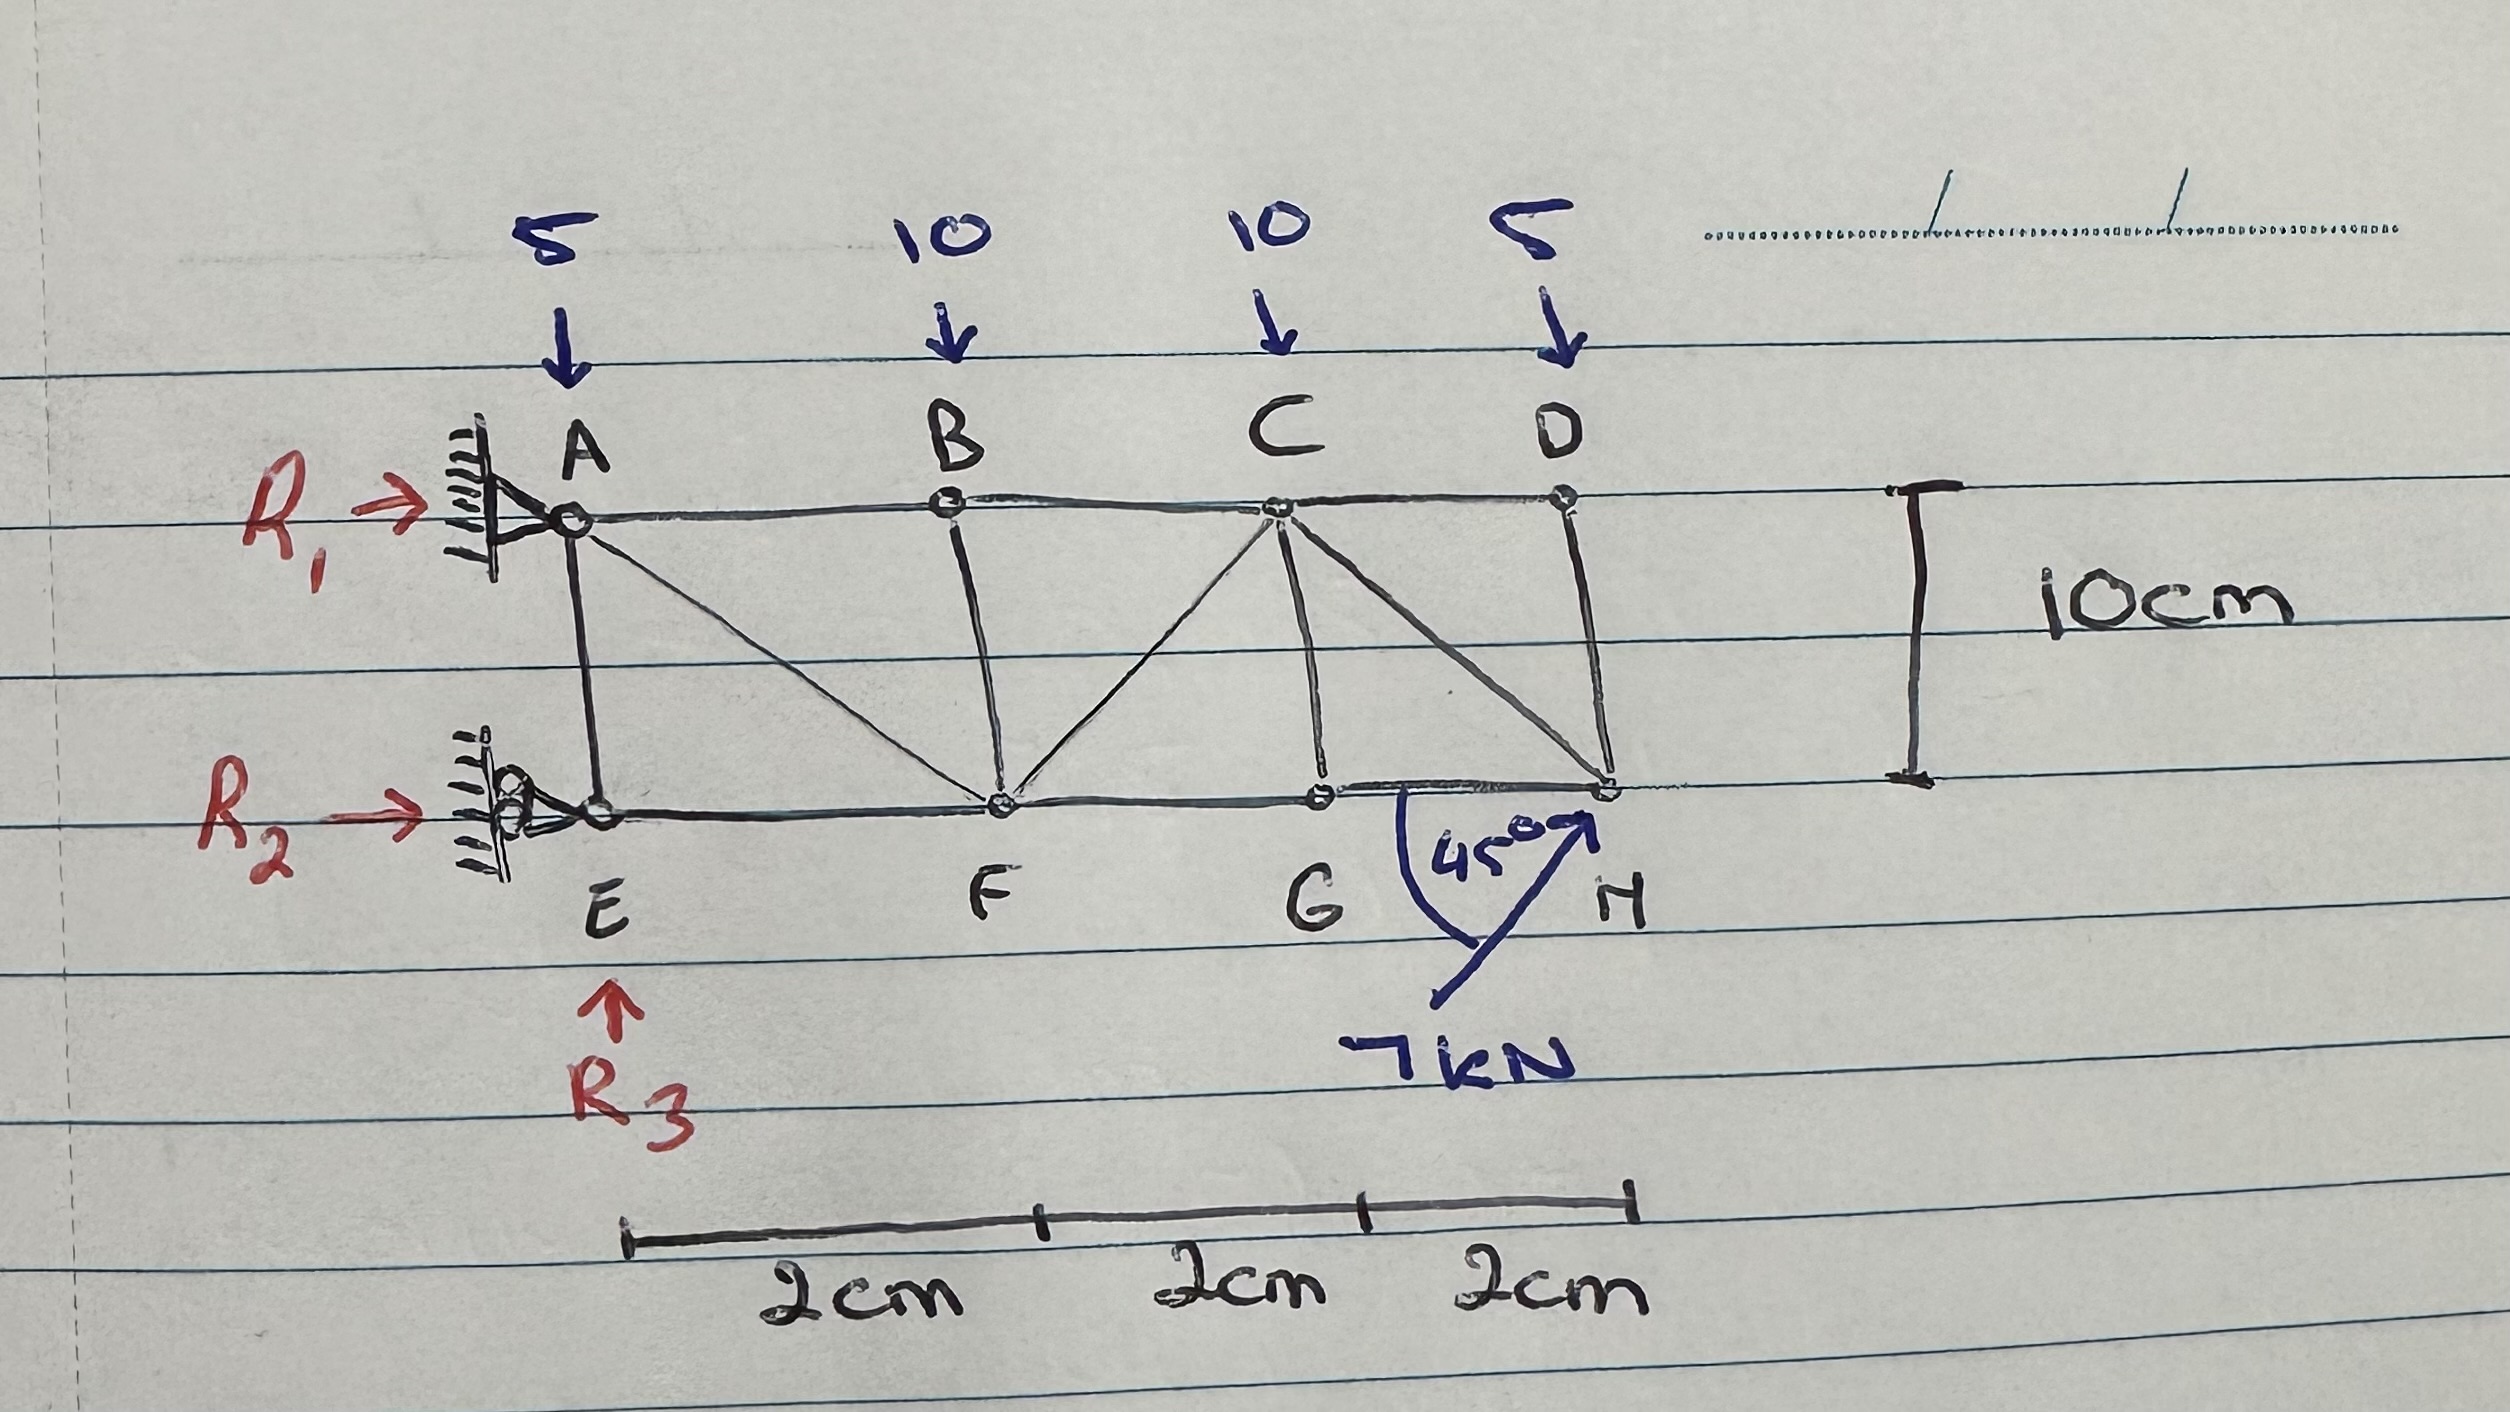 5 10 10 5
A B C D
R1
10cm
R2
45°
E F G H
7kN
R3
2cm 2cm 2cm